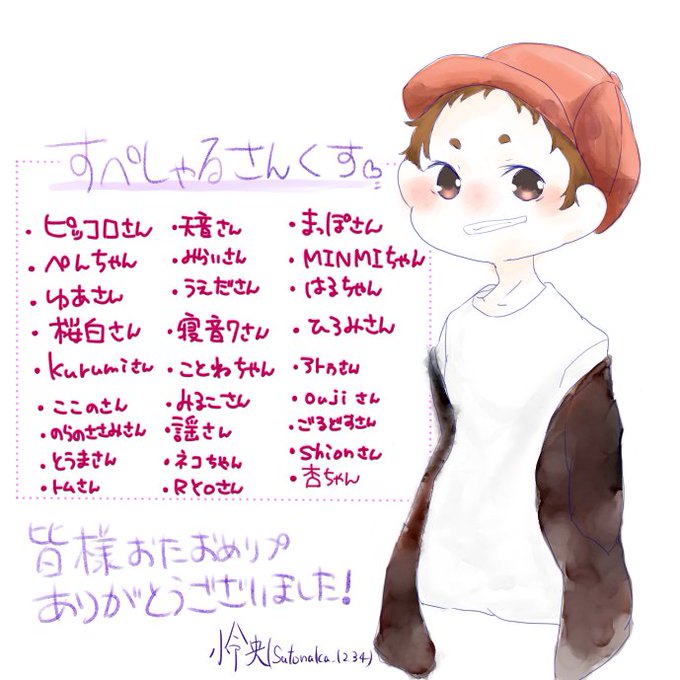 すぺしゃるさんくす♡
・ピッコロさん ・天音さん ・まっぽさん
・ぺんちゃん ・みらいさん ・MINMIちゃん
・ゆあさん ・うえださん ・はるちゃん
・桜白さん ・寝音7さん ・ひろみさん
・kurumiさん ・ことねちゃん ・アトカさん
・ここのさん ・みるこさん ・oujiさん
・のらのささみさん ・謡さん ・ごろどすさん
・とうまさん ・ネコちゃん ・shionさん
・トムさん ・Ryoさん ・杏ちゃん
皆様おたおめリプ
ありがとうございました!
(Satonaka_1234)